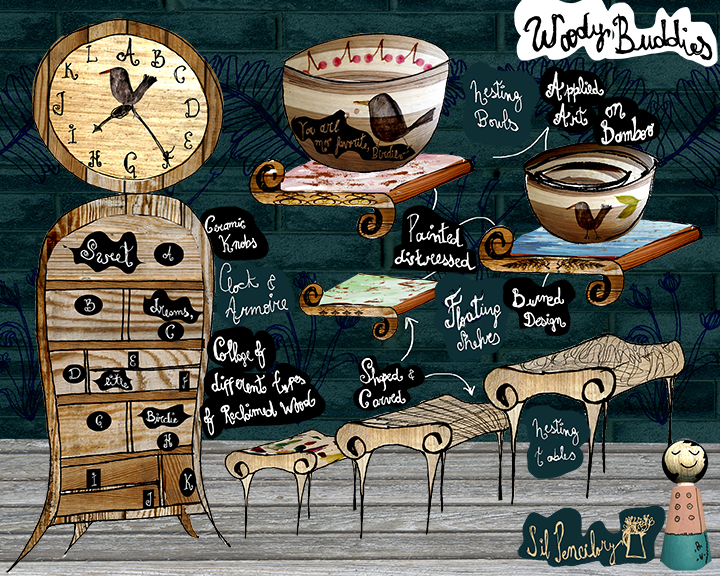 Woody Buddies
L A B C
K
J E
I H G F
You are
my favorite,
Birdie
Nesting
Bowls
Applied
Art on
Bamboo
Ceramic
Knobs
Secret A
B dreams,
C
D E F
G Birdie
H
I J K
Clock &
Armoire
Painted
distressed
Floating
Shelves
Burned
Design
Collage of
different types
of Reclaimed Wood
Shaped &
Carved
Nesting
tables
Sil Pencilory